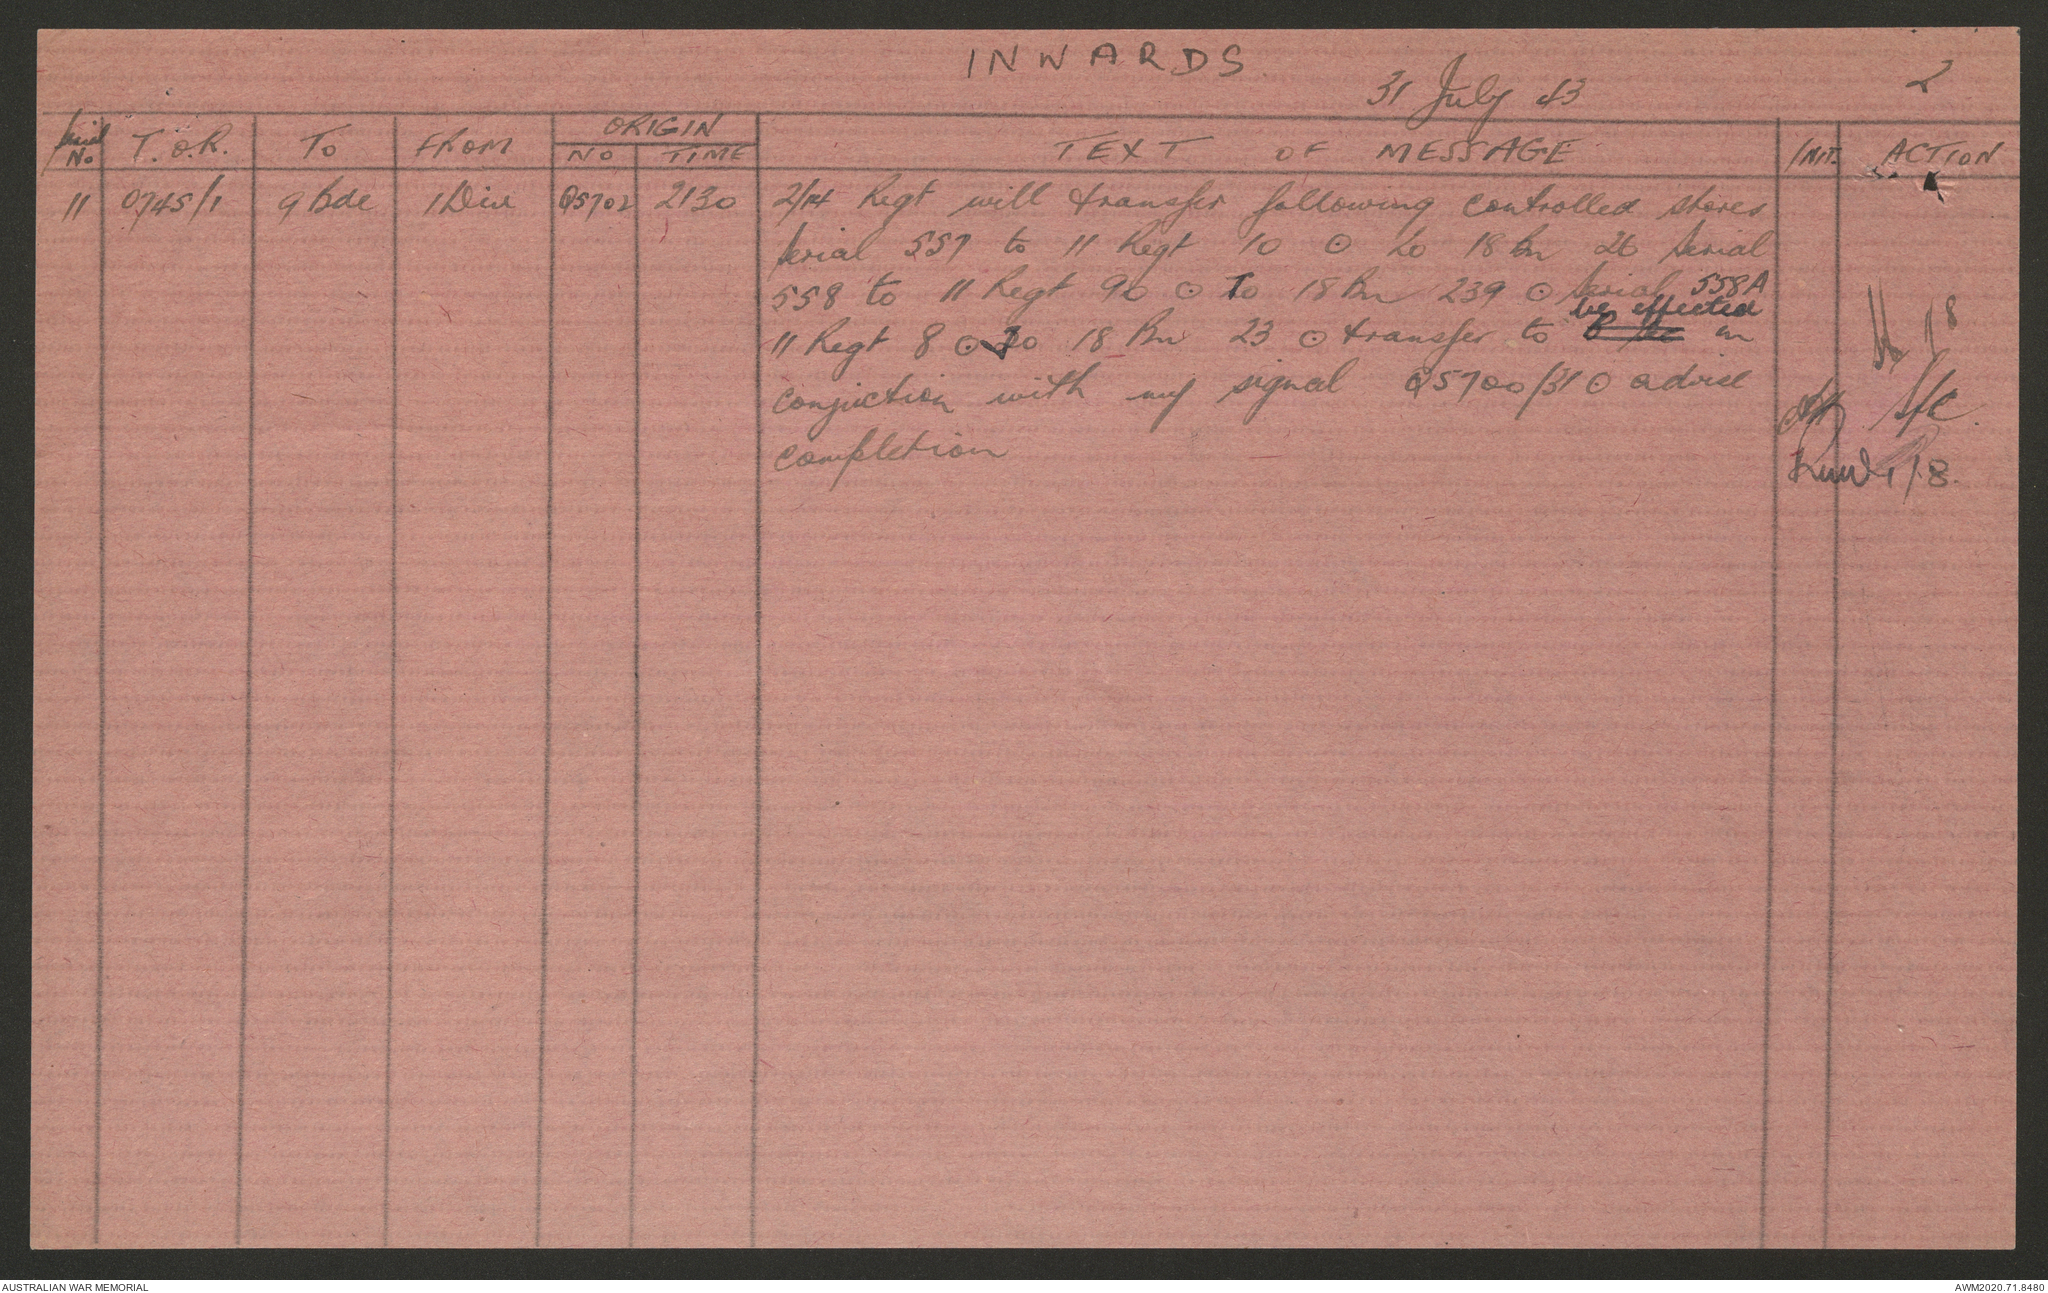 INWARDS
31 July 43
2
Serial No T.O.R. To FROM ORIGIN NO TIME TEXT OF MESSAGE INIT. ACTION
11 0745/1 9 Bde 1 Div Q5702 2130 2/14 Regt will transfer following controlled stores
Serial 557 to 11 Regt 10 ⊙ to 18 Bn 26 Serial
558 to 11 Regt 90 ⊙ To 18 Bn 239 ⊙ Serial 558A
be effected
11 Regt 8 ⊙ To 18 Bn 23 ⊙ transfer to in
conjuction with my signal Q5700/31 ⊙ advise
completion
1/8
S/C
1/8.
AUSTRALIAN WAR MEMORIAL
AWM2020.71.8480